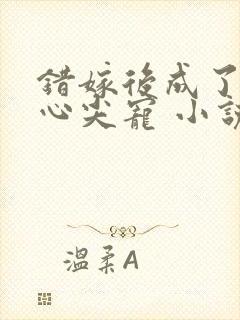 錯嫁後成了
心尖寵 小說
溫柔A